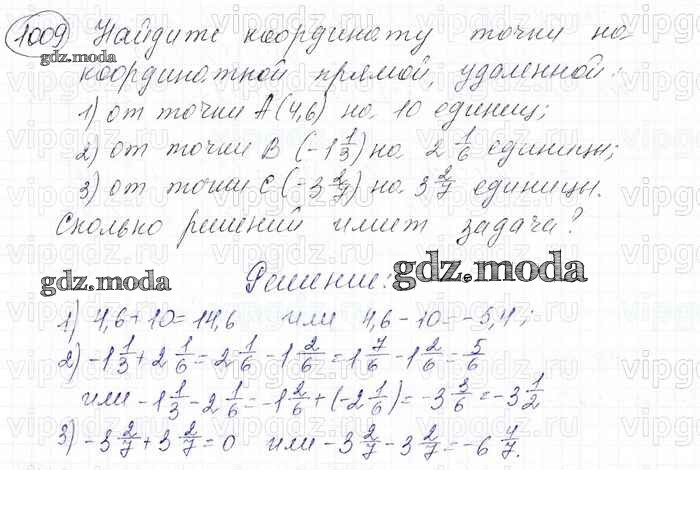 1009 Найдите координату точки на
gdz.moda
координатной прямой, удаленной:
1) от точки A(4,6) на 10 единиц;
2) от точки B (-1 1/3) на 2 1/6 единицы;
3) от точки C(-3 2/7) на 3 2/7 единицы.
Сколько решений имеет задача?
gdz.moda Решение: gdz.moda
1) 4,6+10=14,6 или 4,6-10=-5,4;
2) -1 1/3+2 1/6=2 1/6-1 2/6=1 7/6-1 2/6=5/6
или -1 1/3-2 1/6=-1 2/6+(-2 1/6)=-3 3/6=-3 1/2
3) -3 2/7+3 2/7=0 или -3 2/7-3 2/7=-6 4/7.